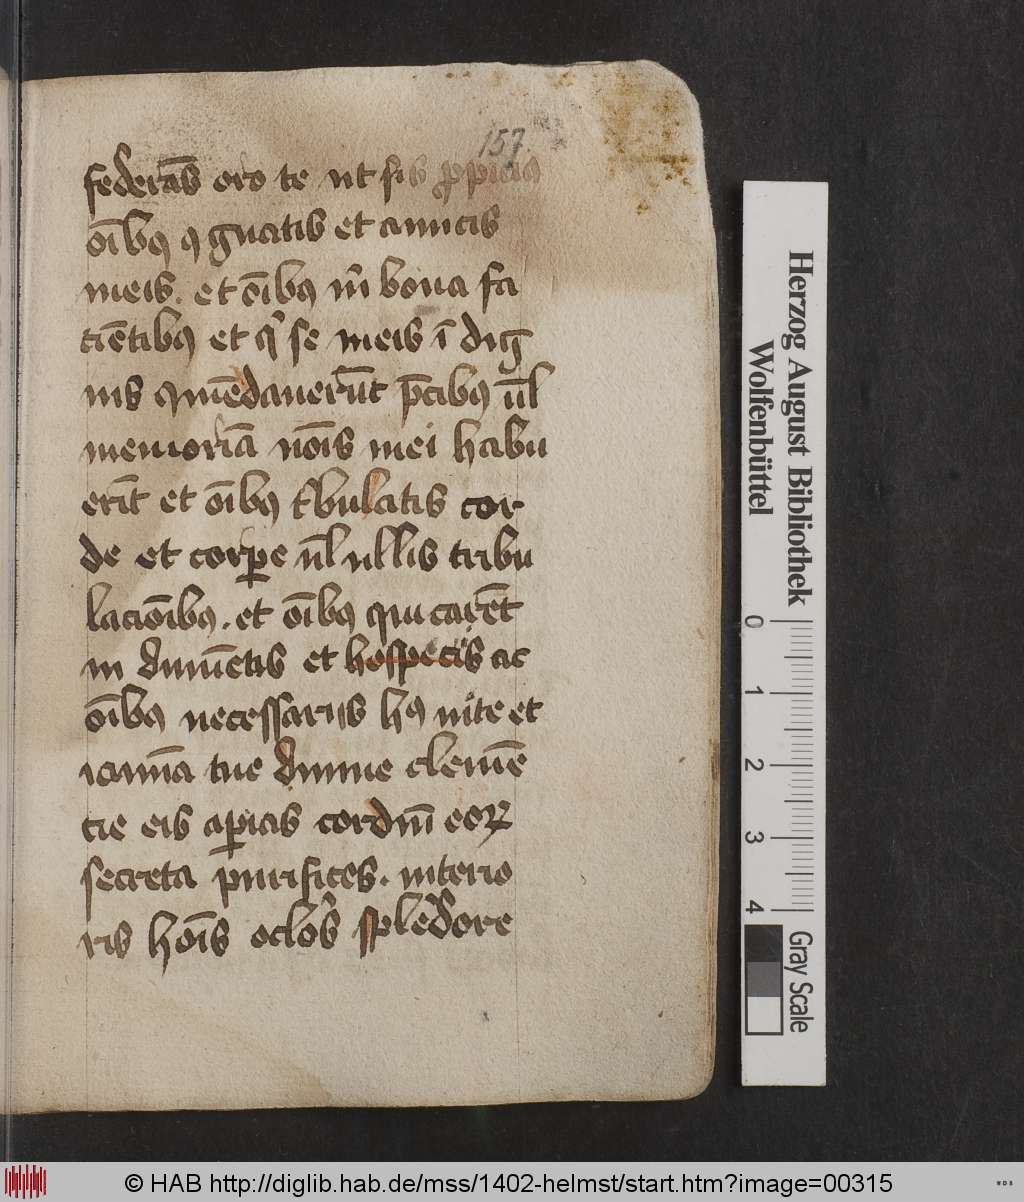 157
federās oro te ut sis ꝓpicius
oı̄bꝰ ꝯgnatis et amicis
meis. et oı̄bꝰ m̄ bona fa
ciētibꝰ et q̇ se meis ī dig
nis ꝯmēdauerūt p̄cibꝰ ūl
memoriā noı̄s mei habu
erīt et oı̄bꝰ tͥbulatis cor
de et corꝑe ūl ullis tribu
lacioı̄bꝰ. et oı̄bꝰ qui carēt
in diuı̄etis et hospeciis ac
oı̄bꝰ necessariis hꝰ uite et
ianuā tue diuine clemē
cie eis aꝑias cordiū eoꝝ
secreta puurifices. interio
ris hoı̄s oclos splēdore
Herzog August Bibliothek
Wolfenbüttel
0 1 2 3 4
Gray Scale
© HAB http://diglib.hab.de/mss/1402-helmst/start.htm?image=00315